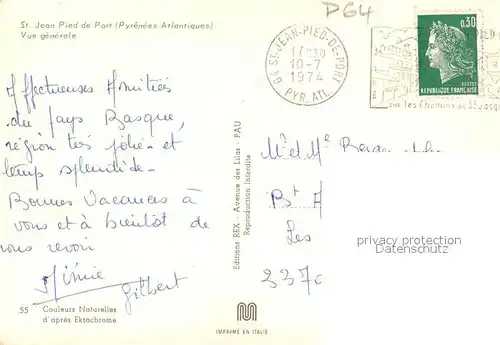 St. Jean Pied de Port (Pyrénées Atlantiques)
Vue générale
D64
64 ST-JEAN-PIED-DE-PORT
17H30
10-7
1974
PYR. ATL.
0,30
POSTES
REPUBLIQUE FRANÇAISE
sur les Chemins de St
Affectueuses Amitiés
du pays Basque,
région très jolie et
temps splendide-
Bonnes Vacances à
vous et à bientôt de
vous revoir
Mimie
Gilbert
Editions REX - Avenue des Lilas - PAU
Reproduction Interdite
Mr et Me
Bt A
Les
privacy protection
protection vie privée
55 Couleurs Naturelles
d'après Ektachrome
IMPRIMÉ EN ITALIE